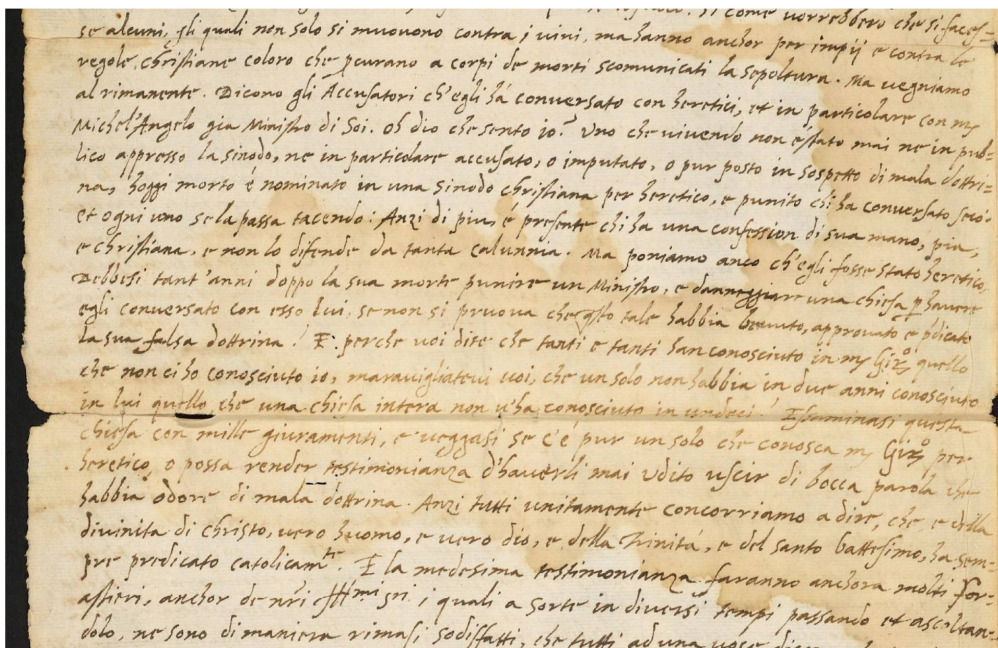 si come vorrebbero che si faces-
se alcuni, gli quali non solo si muovono contra i vivi, ma hanno anchor per impij e contra le
regole christiane coloro che pcurano a corpi de morti scomunicati la sepoltura. Ma vegniamo
al rimanente. Dicono gli Accusatori ch'egli há conversato con heretici, et in particolare con m
Michel'Angelo gia Ministro di Soi. Oh dio che sento io? Uno che vivendo non é stato mai ne in pub-
lico appresso la sinodo, ne in particolare accusato, o imputato, o pur posto in sospetto di mala dottri-
na, hoggi morto é nominato in una sinodo christiana per heretico, e punito chi ha conversato seco:
et ogni uno se la passa tacendo: Anzi di piu, é presente chi ha una confession di sua mano, pia,
e christiana, e non lo difende da tanta calunnia. Ma poniamo anco ch'egli fosse stato heretico,
Debbesi tant'anni doppo la sua morte punire un Ministro, e danneggiare una chiesa p havere
egli conversato con esso lui, se non si pruova che qsto tale habbia bevuto, approvato e pdicato
la sua falsa dottrina! E perche voi dite che tanti e tanti han conosciuto in m Giro quello
che non ci ho conosciuto io, maravigliatevi voi, che un solo non habbia in due anni conosciuto
in lui quello, che una chiesa intera non v'ha conosciuto in undeci! Essaminasi questa
chiesa con mille giuramenti, e veggasi se c'é pur un solo che conosca m Giro per
heretico, o possa render testimonianza d'haverli mai udito uscir di bocca parola che
habbia odore di mala dottrina. Anzi tutti unitamente concorriamo a dire, che, e della
divinita di christo, vero huomo, e vero dio, e della Trinitá, e del santo battesimo, ha sem-
pre predicato catolicamte. E la medesima testimonianza faranno anchora molti for-
astieri, anchor de nri i quali a sorte in diversi tempi passando et ascoltan-
dolo, ne sono di maniera rimasi sodisfatti, che tutti ad una voce